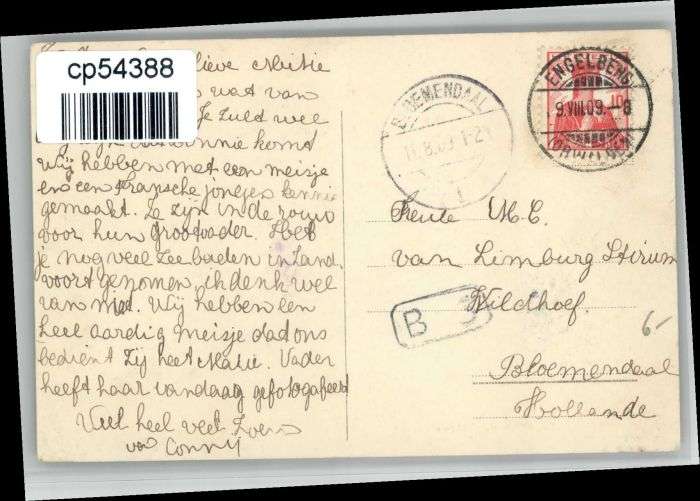 cp54388
lieve Mietie
wat van
Je zuld wel
komd
Wij hebben met een meisje
en een Fransche jongen kennis
gemaakt. Ze zijn in de rouw
voor hun grootvader. Heb
je nog veel zeebaden in Zand.
voort genomen, ik denk wel
van niet. Wij hebben een
heel aardig meisje dad ons
bedient Zij heet Marie. Vader
heeft haar vandaag gefotografeerd
Veel heel veel Zoens
van Conny
ENGELBERG
9.VIII.09.-8
(OBWALDEN)
10
BLOEMENDAAL
11.8.09 1-2V
1
Freule M.C.
van Limburg Stirum
Wildhoef.
Bloemendaal
Hollande
B
6-